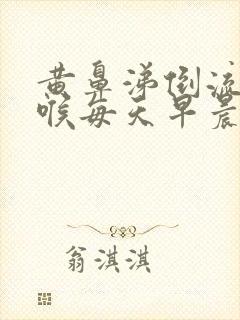 黄鼻涕倒流
喉每天早晨
翁淇淇